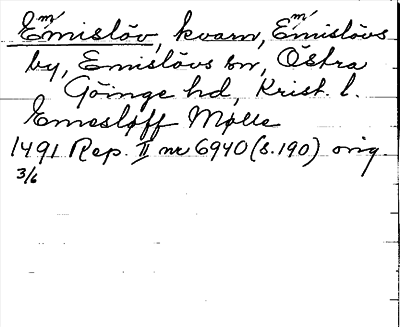 Emmislöv, kvarn, Emmislövs
by, Emislövs sn, Östra
Göinge hd, Krist. l.
Emesløff Mølle
1491 Rep. II nr 6940 (s. 190) orig
3/6